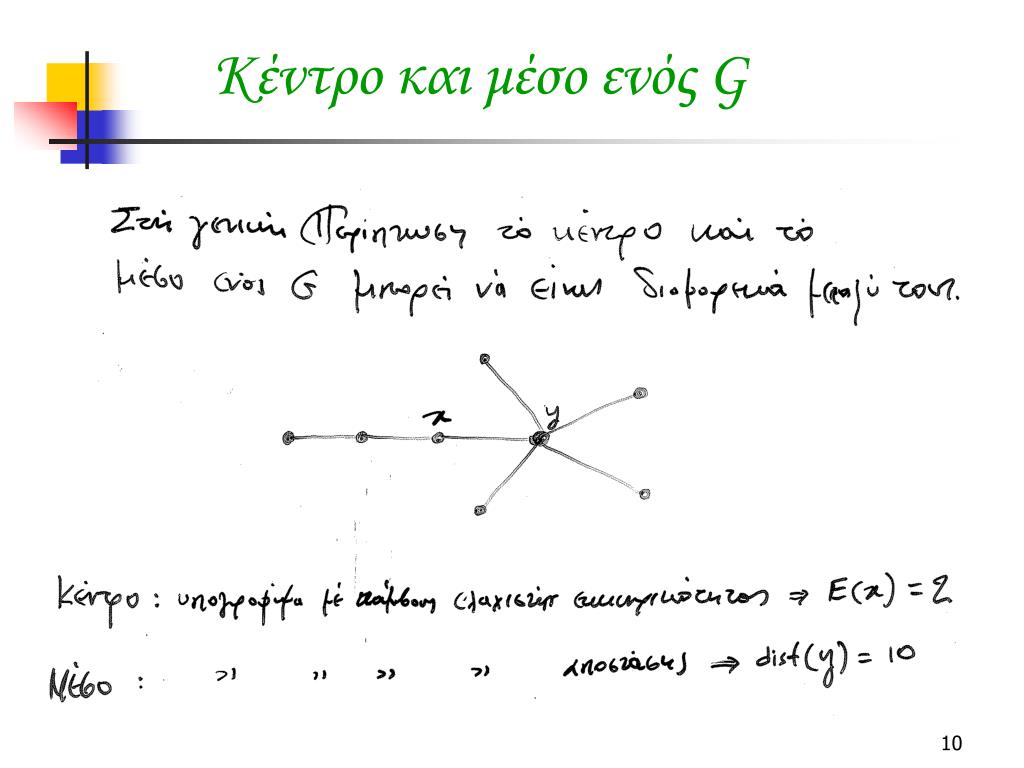 Κέντρο και μέσο ενός G
Στή γενική περίπτωση τό κέντρο καί τό
μέσο ενός G μπορεί νά είναι διαφορετικά μεταξύ τους.
x
y
Κέντρο : υπογράφημα μέ κόμβους ελαχίστης εκκεντρικότητος ⇒ E(x) = 2
Μέσο : ,, ,, ,, ,, αποστάσης ⇒ dist(y) = 10
10